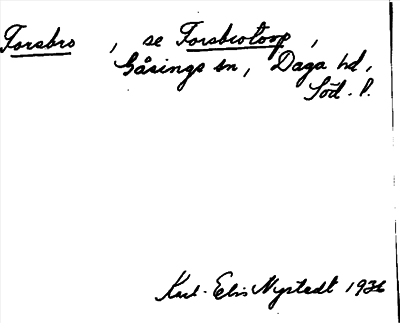 Forsbro , se Forsbrotorp ,
Gåsinge sn, Daga hd,
Söd. l.
Karl-Elis Nystedt 1936